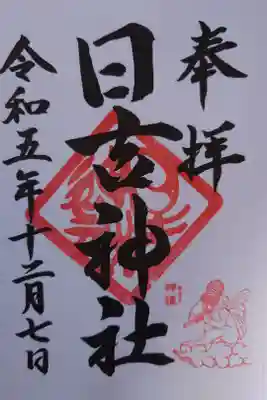 奉拝
日古神社
令和五年十二月七日